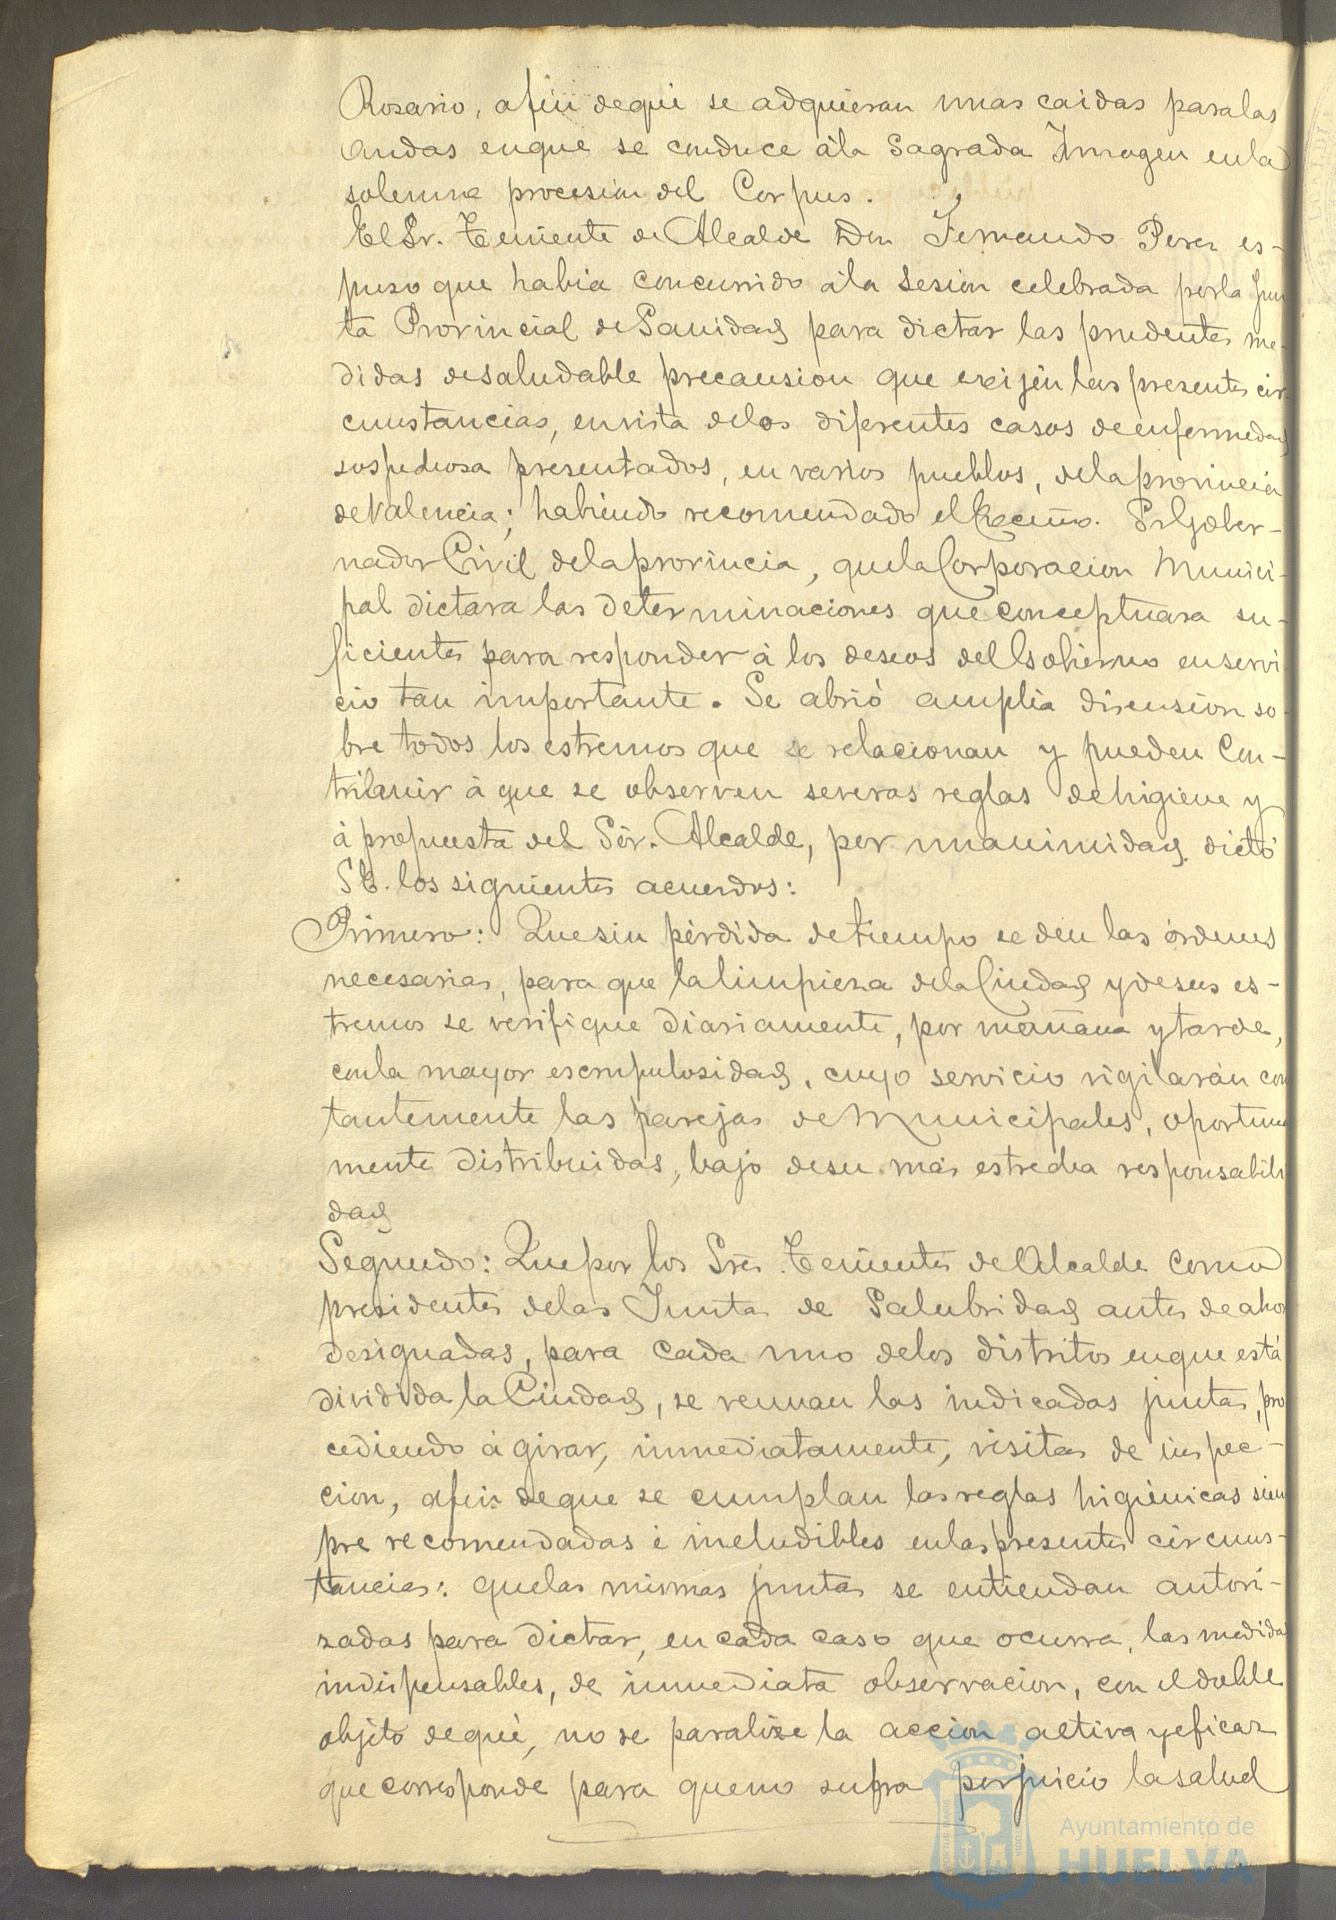 Rosario, afin de que se adquieran unas caidas para las
andas en que se conduce á la Sagrada Imagen en la
solemne procesion del Corpus.
El Sr. Teniente de Alcalde Don Fernando Perez es-
puso que habia concurrido á la sesion celebrada por la Jun
ta Provincial de Sanidad para dictar las prudentes me-
didas de saludable precausion que exijen las presentes cir
cunstancias, en vista de los diferentes casos de enfermedad
sospechosa presentados, en varios pueblos, de la provincia
de Valencia; habiendo recomendado el Excmo. Sr. Gober-
nador Civil de la provincia, que la Corporacion Munici-
pal dictara las determinaciones que conceptuara su-
ficientes para responder á los deseos del Gobierno en servi-
cio tan importante. Se abrió amplia discusion so-
bre todos los estremos que se relacionan y pueden con-
tribuir á que se observen severas reglas de higiene y
á propuesta del Sór. Alcalde, por unanimidad, dictó
S.E. los siguientes acuerdos:
Primero: Que sin pérdida de tiempo se den las órdenes
necesarias, para que la limpieza de la Ciudad y de sus es-
tremos se verifique diariamente, por mañana y tarde,
con la mayor escrupulosidad, cuyo servicio vigilarán con
tantemente las parejas de Municipales, oportuna
mente distribuidas, bajo de su más estrecha responsabili
dad
Segundo: Que por los Sres. Tenientes de Alcalde como
presidentes de las Juntas de Salubridad antes de ahora
designadas, para cada uno de los distritos en que está
dividida la Ciudad, se reunan las indicadas juntas, pro
cediendo á girar, inmediatamente, visitas de inspec-
cion, afin de que se cumplan las reglas higiénicas siem
pre recomendadas é ineludibles en las presentes circuns-
tancias: que las mismas juntas se entiendan autori-
zadas para dictar, en cada caso que ocurra, las medidas
indispensables, de inmediata observacion, con el doble
objeto de que, no se paralize la accion activa y eficaz
que corresponde para que no sufra perjuicio la salud
Ayuntamiento de
HUELVA